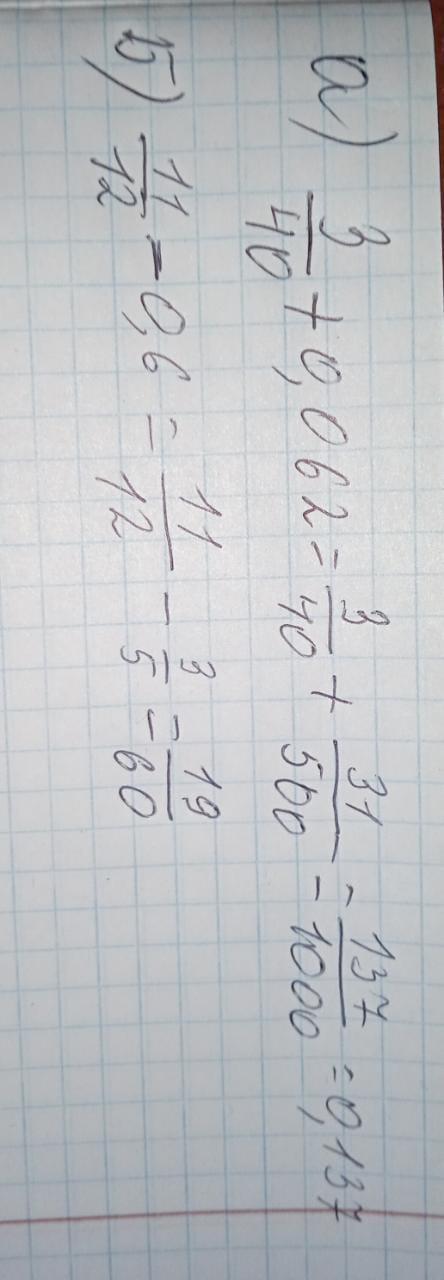 а) 3/40 + 0,062 = 3/40 + 31/500 = 137/1000 = 0,137
Б) 11/12 - 0,6 = 11/12 - 3/5 = 19/60